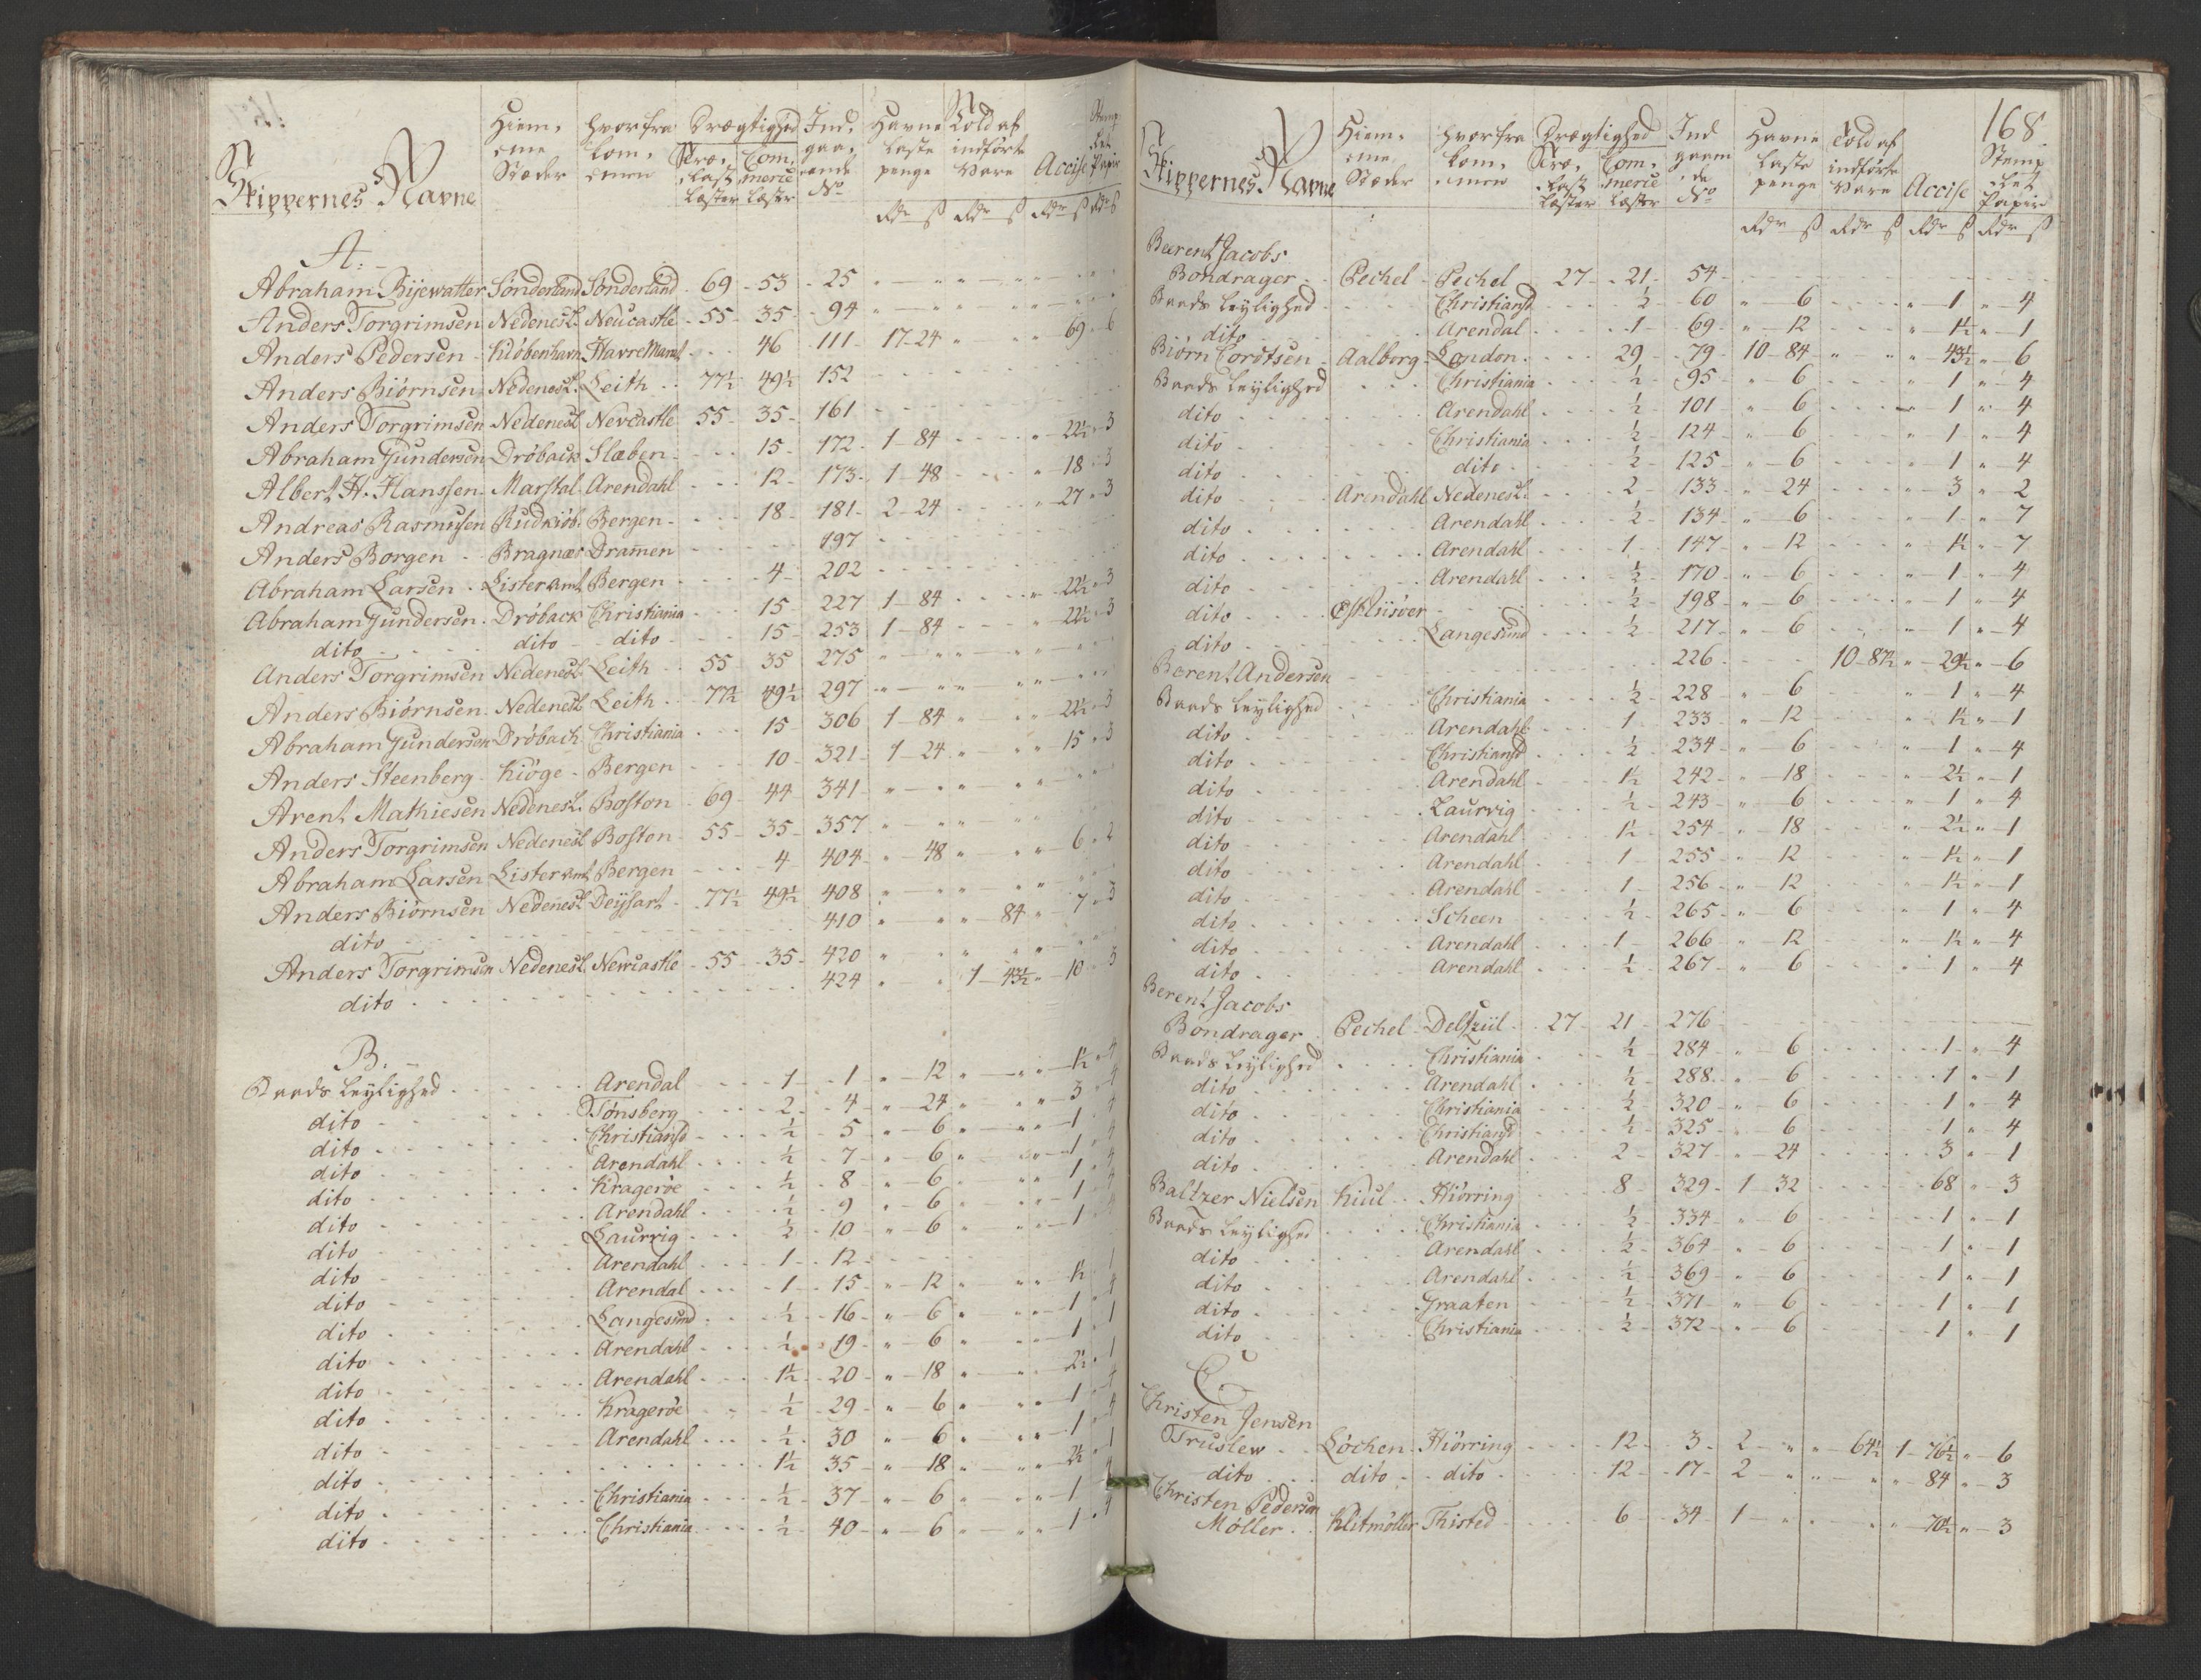 Skippernes Navne
Hiem, eme Stæder
hvorfra kom, emen
Drægtighed
Træ, last Læster
Com, merce Læster
Ind, gaa, ende No
Havne laste penge
Told af indførte Vare
Accise
Stemp let Papir
Rdr ß Rdr ß Rdr ß Rdr ß
A:
Abraham Bijewatter Sønderland Sønderland 69 - 53 - 25
Anders Torgrimsen Nedenesl. Neucastle 55 35 94
Anders Pedersen Kiøbenhavn Havre Marat 46 111 17-24 " " " 69 " 6
Anders Biørnsen Nedenesl. Leith 77½ 49½ 152
Anders Torgrimsen Nedenesl Nevcastle 55 35 161
Abraham Gundersen Drøback Slæben 15 172 1-84 " 22½ " 3
Albert H. Hanssen Marstal Arendahl 12 173 1-48 " 18 " 3
Andreas Rasmusen Rudkiøb. Bergen 18 181 2-24 " 27 " 3
Anders Borgen Bragnæs Dramen 197
Abraham Larsen Lister amt Bergen 4 202
Abraham Gundersen Drøback Christiania 15 227 1-84 " 22½ " 3
dito dito dito 15 253 1-84 " 22½ " 3
Anders Torgrimsen Nedenesl Leith 55 35 275
Anders Biørnsen Nedenesl Leith 77½ 49½ 297
Abraham Gundersen Drøbach Christiania 15 306 1-84 " " " 22½ " 3
Anders Steenberg Kiøge Bergen 10 321 1-24 " " " 15 " 3
Arent Mathiesen Nedenesl. Boston 69 44 341
Anders Torgrimsen Nedenesl Boston 55 35 357
Abraham Larsen Lister amt Bergen 4 404 " 48 " " " 6 " 2
Anders Biørnsen Nedenesl Deysart 77½ 49½ 408
dito 410 " " " 84 " 7 " 3
Anders Torgrimsen Nedenesl. Newcastle 55 35 420
dito 424 " " 1 43½ " 10 " 3
B.
Baads Leylighed Arendal 1 1 " 12 " " " 1½ " 4
dito Tønsberg 2 4 " 24 " " " 3 " 4
dito Christiansd ½ 5 " 6 " " " 1 " 4
dito Arendahl ½ 7 " 6 " " " 1 " 4
dito Kragerøe ½ 8 " 6 " " " 1 " 4
dito Arendahl ½ 9 " 6 " " " 1 " 4
dito Laurvig ½ 10 " 6 " " " 1 " 4
dito Arendahl 1 12
dito Arendal 1 15 " 12 " " " 1½ " 1
dito Langesund ½ 16 " 6 " " " 1 " 4
dito Arendahl ½ 19 " 6 " " " 1 " 1
dito Arendahl 1½ 20 " 18 " " " 2½ " 1
dito Kragerøe ½ 29 " 6 " " " 1 " 4
dito Arendahl ½ 30 " 6 " " " 1 " 4
dito 1½ 35 " 18 " " " 2½ " 1
dito Christiania ½ 37 " 6 " " " 1 " 4
dito Christiania ½ 40 " 6 " " " 1 " 4
168
Skippernes Navne
Hiem, eme Stæder
hvorfra kom, emen
Drægtighed
Træ, last Læster
Com, merce Læster
Ind gaaen de No
Havne laste penge
Told af indførte Vare
Accise
Stemp let Papir
Rdr ß Rdr ß Rdr ß Rdr ß
Beerent Jacobs
Bondrager Pechel Pechel 27 21 54
Baads Leylighed Christiansd ½ 60 " 6 " 1 " 4
dito Arendal 1 69 " 12 " 1½ " 1
Biørn Corotsen Aalborg London 29 79 10-84 " " " 43½ " 6
Baads Leylighed Christiania ½ 95 " 6 " 1 " 4
dito Arendahl ½ 101 " 6 " 1 " 4
dito Christiania ½ 124 " 6 " 1 " 4
dito dito ½ 125 " 6 " 1 " 4
dito Arendahl Nedenesl. 2 133 " 24 " 3 " 2
dito Arendahl ½ 134 " 6 " 1 " 7
dito Arendahl 1 147 " 12 " 1½ " 7
dito Arendahl ½ 170 " 6 " 1 " 4
dito ½ 198 " 6 " 1 " 4
dito Langesund ½ 217 " 6 " 1 " 4
Berent Andersen 226 10-87½ " 29½ " 6
Baads Leylighed Christiania ½ 228 " 6 " 1 " 4
dito Arendahl 1 233 " 12 " 1½ " 1
dito Christiansd ½ 234 " 6 " 1 " 4
dito Arendahl 1½ 242 " 18 " 2½ " 1
dito Laurvig ½ 243 " 6 " 1 " 4
dito Arendahl 1½ 254 " 18 " 2½ " 1
dito Arendahl 1 255 " 12 " 1½ " 1
dito Arendahl 1 256 " 12 " 1½ " 1
dito Scheen ½ 265 " 6 " 1 " 4
dito Arendahl 1 266 " 12 " 1½ " 4
dito Arendahl ½ 267 " 6 " 1 " 4
Berent Jacobs
Bondrager Pechel Delfziil 27 21 276
Baads Leylighed Christiania ½ 284 " 6 1 " 4
dito Arendahl ½ 288 " 6 1 " 1
dito Christiania ½ 320 " 6 1 " 4
dito Christiansd ½ 325 " 6 1 " 4
dito Arendahl 2 327 " 24 3 " 1
Baltzer Nielsen Kiul Hiørring 8 329 1 32 68 " 3
Baads Leylighed Christiania ½ 334 " 6 1 " 1
dito Arendahl ½ 364 " 6 1 " 1
dito Arendahl ½ 369 " 6 1 " 1
dito Graaten ½ 371 " 6 1 " 1
dito Christiania ½ 372 " 6 1 " 1
C.
Christen Jensen
Truslew Løchen Hiørring 12 3 2 " " 64½ 1 76½ " 6
dito dito dito 12 17 2 " " " " 84 " 3
Christen Pedersen
Møller Klitmøller Thisted 6 34 1 " " " " 70½ " 3